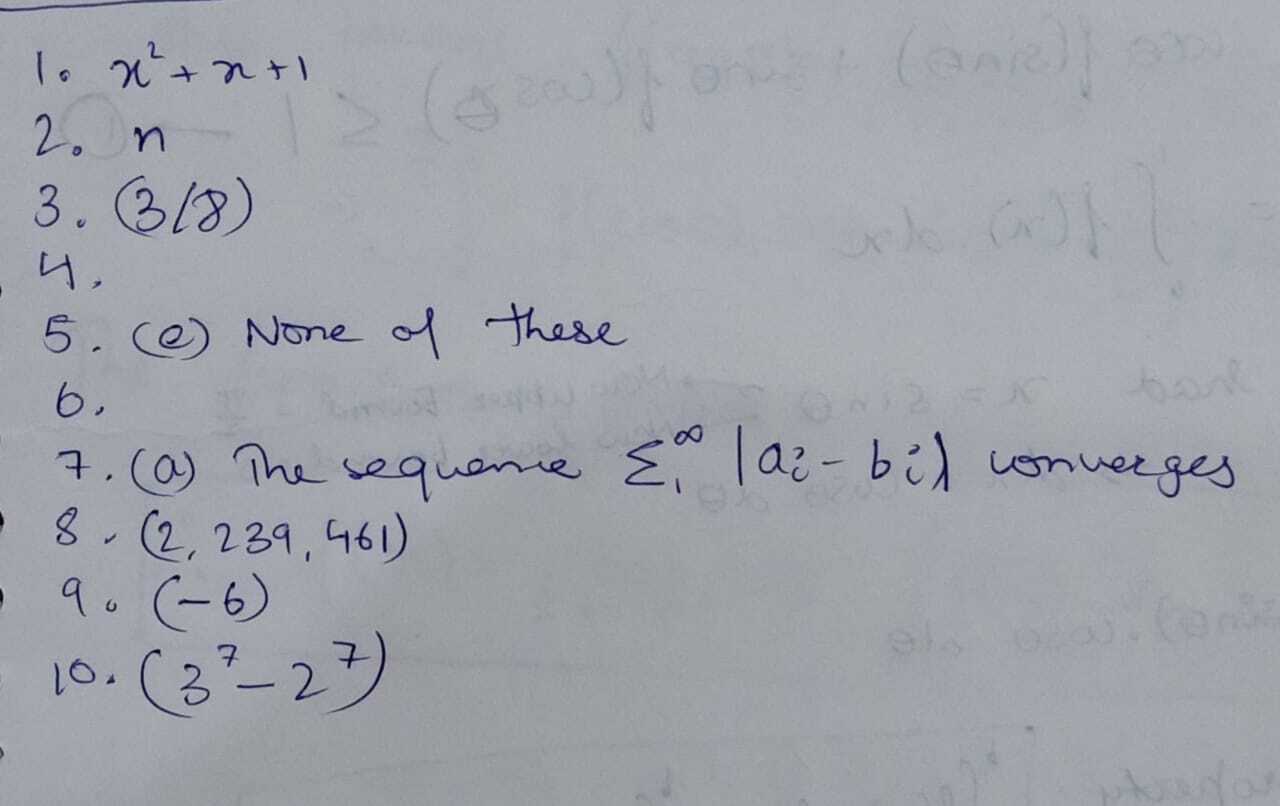 1. x²+x+1
2. n
3. (3/8)
4.
5. (e) None of these
6.
7. (a) The sequence Σ₁^∞ |ai - bi| converges
8. (2, 239, 461)
9. (-6)
10. (3⁷-2⁷)